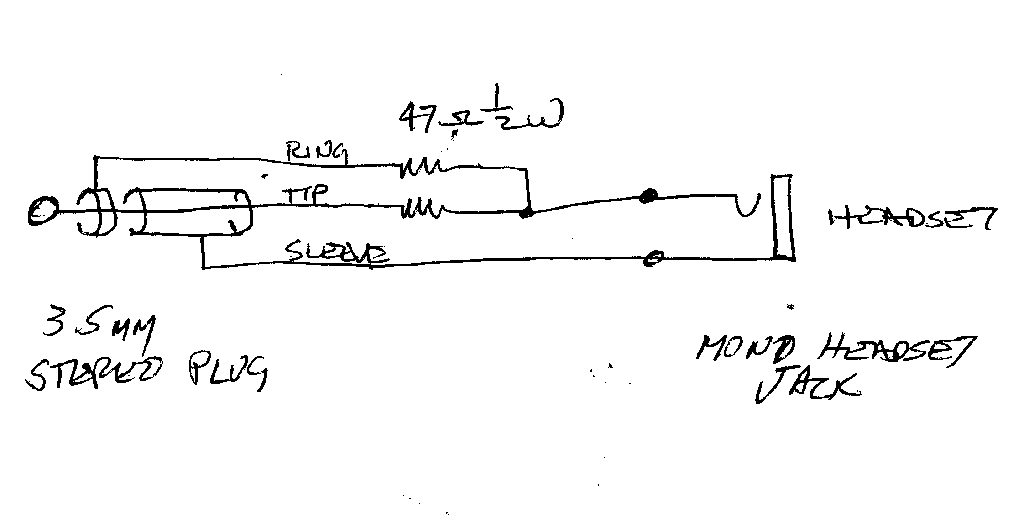 47 Ω 1/2 W
RING
TIP
SLEEVE
HEADSET
3.5MM
STEREO PLUG
MONO HEADSET
JACK